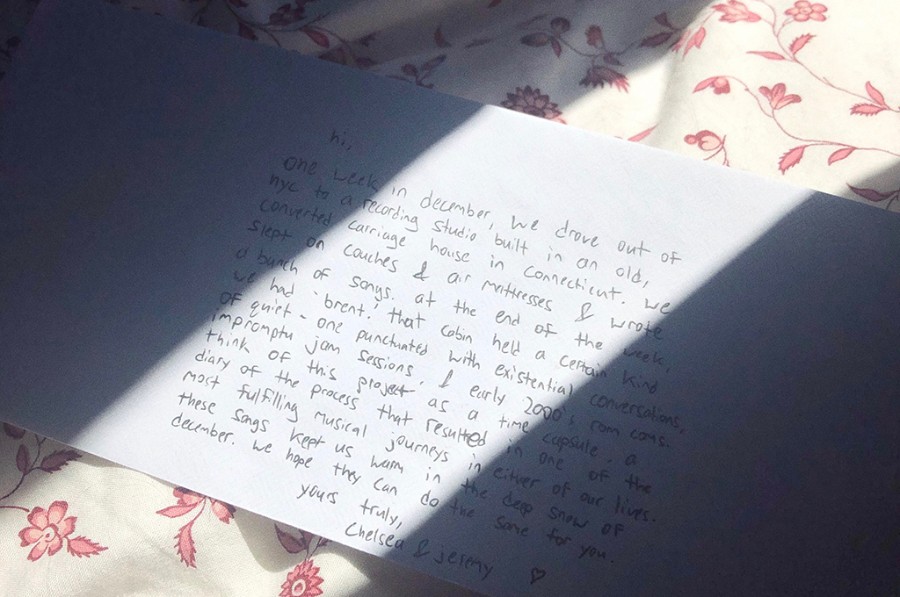 hi,
one week in december, we drove out of
nyc to a recording studio built in an old,
converted carriage house in connecticut. we
slept on couches & air mattresses & wrote
a bunch of songs. at the end of the week,
we had 'brent.' that cabin held a certain kind
of quiet - one punctuated with existential conversations,
impromptu jam sessions, & early 2000's rom coms.
think of this project as a time capsule. a
diary of the process that resulted in one of the
most fulfilling musical journeys in either of our lives.
these songs kept us warm in the deep snow of
december. we hope they can do the same for you.
yours truly,
Chelsea & jeremy ♡